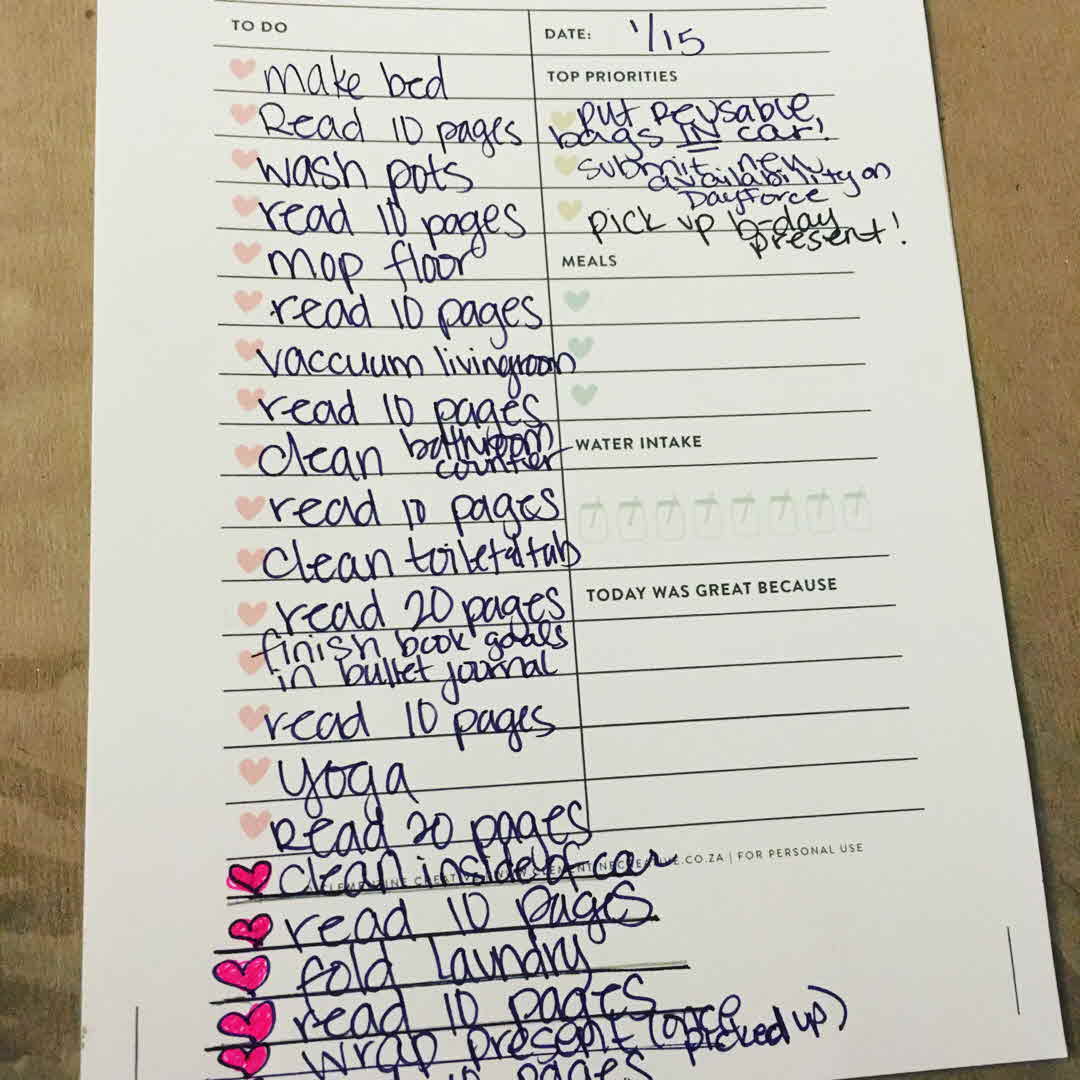 TO DO
make bed
Read 10 pages
wash pots
read 10 pages
mop floor
read 10 pages
vaccuum livingroom
read 10 pages
clean bathroom
counter
read 10 pages
clean toilet & tub
read 20 pages
finish book goals
in bullet journal
read 10 pages
yoga
Read 20 pages
clean inside of car
read 10 pages
fold laundry
read 10 pages
wrap present (once
picked up)
10 pages
DATE: 1/15
TOP PRIORITIES
put reusable
bags IN car!
submit new
availability on
Dayforce
pick up b-day
present!
MEALS
WATER INTAKE
TODAY WAS GREAT BECAUSE
.CO.ZA | FOR PERSONAL USE